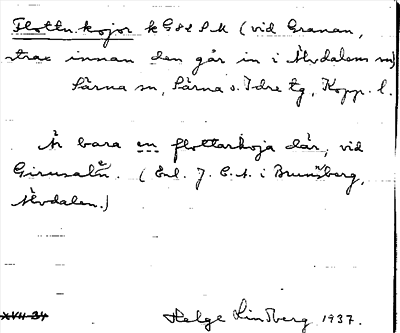 Flottu kojor k G82 S M (vid Granan,
strax innan den går in i Älvdalens sn)
Särna sn, Särna o. Idre tg, Kopp. l.
Är bara en flottarkoja där, vid
Girusalén. (Enl. J. E. A. i Brunnsberg,
Älvdalen.)
XVII 34
Helge Lindberg 1937.